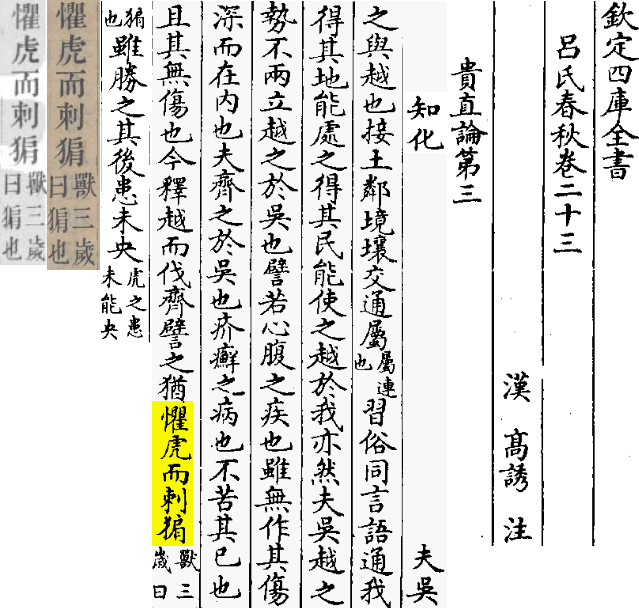 欽定四庫全書
呂氏春秋卷二十三
漢 髙誘 注
貴直論第三
知化 夫吳
之與越也接土鄰境壤交通屬屬連也習俗同言語通我
得其地能處之得其民能使之越於我亦然夫吳越之
勢不兩立越之於吳也譬若心腹之疾也雖無作其傷
深而在内也夫齊之於吳也疥癬之病也不苦其已也
且其無傷也今釋越而伐齊譬之猶懼虎而刺猏獸三歲曰
猏也雖勝之其後患未央虎之患未能央
懼虎而刺猏獸三歲曰猏也
懼虎而刺猏獸三歲曰猏也